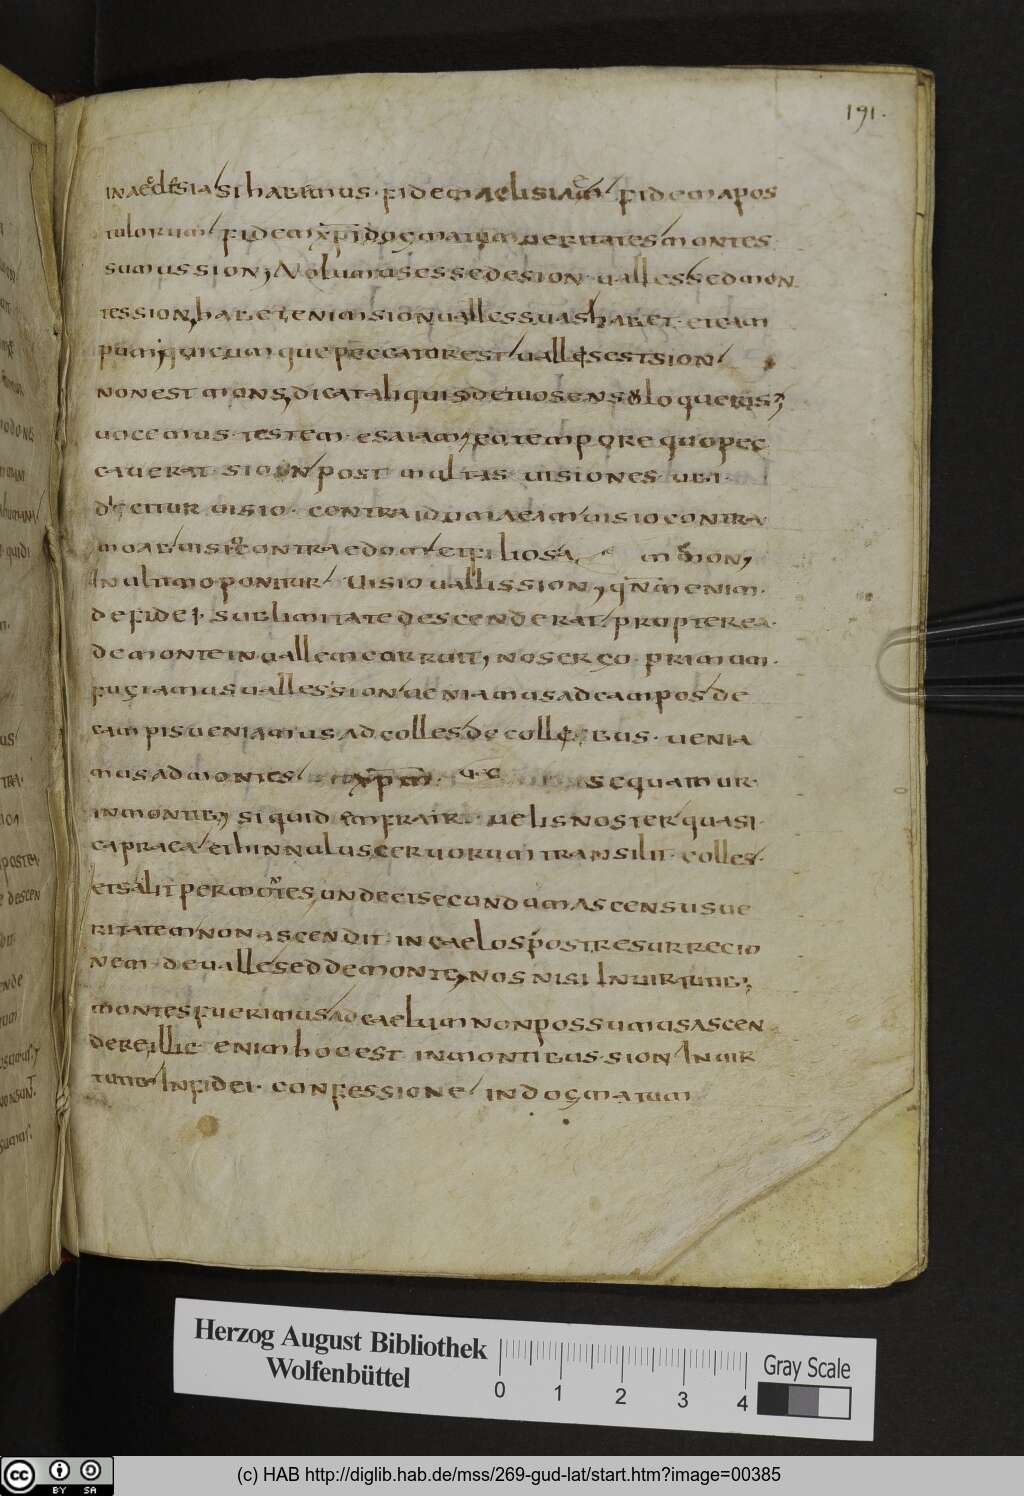 191.
IN AECLESIA SI HABEMUS FIDEM AELISIAM FIDEM APOS
TULORUM FIDEM XPI DOGMATUM UERITATES MONTES
SUMUS SION; NOLUMUS ESSE DE SION UALLES SED MON
TES SION, HABET ENIM SION UALLES SUAS HABET ETIAM
QUICUMQUE PECCATOR EST UALLES EST SION
NON EST MONS, DICAT ALIQUIS DE TUO SENSU LOQUERIS;
UOCEMUS TESTEM ESAIAM, EO TEMPORE QUO PEC
CAUERAT SION POST MULTAS UISIONES UBI
DICITUR UISIO CONTRA IDUMAEAM UISIO CONTRA
MOAB UISIO CONTRA EDOM ET FILIOS A MMON,
IN ULTIMO PONITUR UISIO UALLIS SION, QNM ENIM
DE FIDEI SUBLIMITATE DESCENDERAT PROPTEREA
DE MONTE IN UALLEM CORRUIT, NOS ERGO PRIMUM
FUGIAMUS UALLES SION UENIAMUS AD CAMPOS DE
CAMPIS UENIAMUS AD COLLES DE COLLIBUS UENIA
MUS AD MONTES XPM SEQUAMUR
IN MONTIB; SI QUID EM FRATR UELIS NOSTER QUASI
CAPREA ET HINNULUS CERUORUM TRANSILIT COLLES
ET SALIT PER MONTES, UNDE ET SECUNDUM ASCENSUS UE
RITATEM NON ASCENDIT IN CAELOS POST RESURRECTIO
NEM DE UALLE SED DE MONTE, NOS NISI IN UIRTUTIB;
MONTES FUERIMUS AD CAELUM NON POSSUMUS ASCEN
DERE ILLIC ENIM HOC EST IN MONTIBUS SION IN UIR
TUTIB; IN FIDEI CONFESSIONE IN DOGMATUM
Herzog August Bibliothek
Wolfenbüttel
0 1 2 3 4
Gray Scale
cc BY SA
(c) HAB http://diglib.hab.de/mss/269-gud-lat/start.htm?image=00385